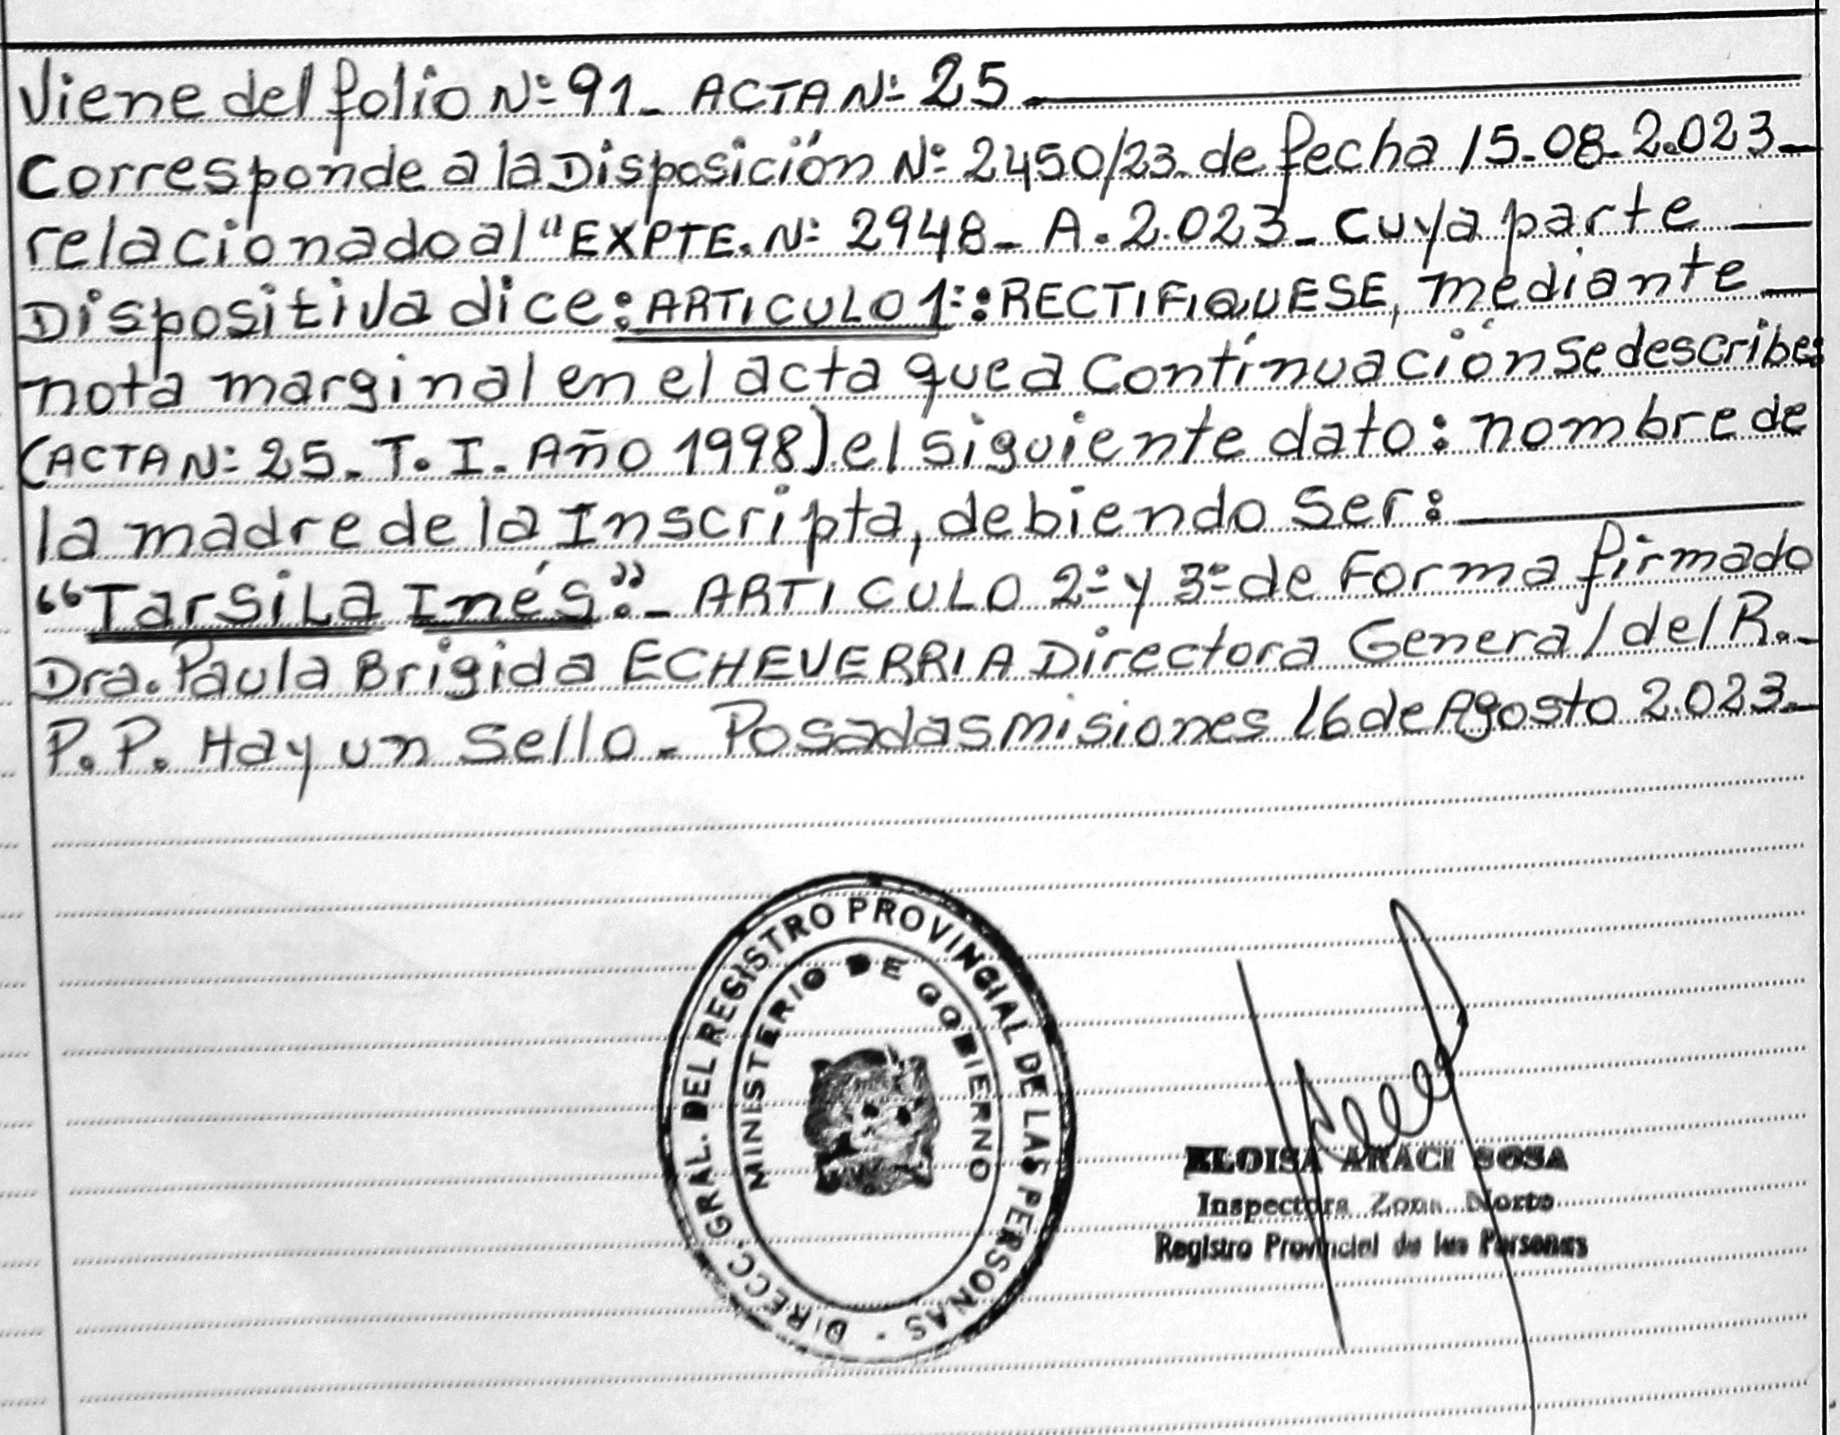 Viene del folio Nº 91_ ACTA Nº 25_
Corresponde a la Disposición Nº 2450/23_ de fecha 15_08_2.023_
relacionado al "EXPTE. Nº 2948_ A. 2.023_ cuya parte
Dispositiva dice: ARTICULO 1º: RECTIFIQUESE, mediante
nota marginal en el acta que a Continuación se describe:
(ACTA Nº 25_ T. I. Año 1998) el siguiente dato: nombre de
la madre de la Inscripta, debiendo Ser:
"Tarsila Inés"._ ARTICULO 2º y 3º de Forma firmado
Dra. Paula Brigida ECHEVERRIA Directora General del R._
P. P. Hay un Sello_ Posadas Misiones 16 de Agosto 2.023._
DIRECC. GRAL. DEL REGISTRO PROVINCIAL DE LAS PERSONAS -
MINISTERIO DE GOBIERNO
ELOISA ARACI SOSA
Inspectora Zona Norte
Registro Provincial de las Personas